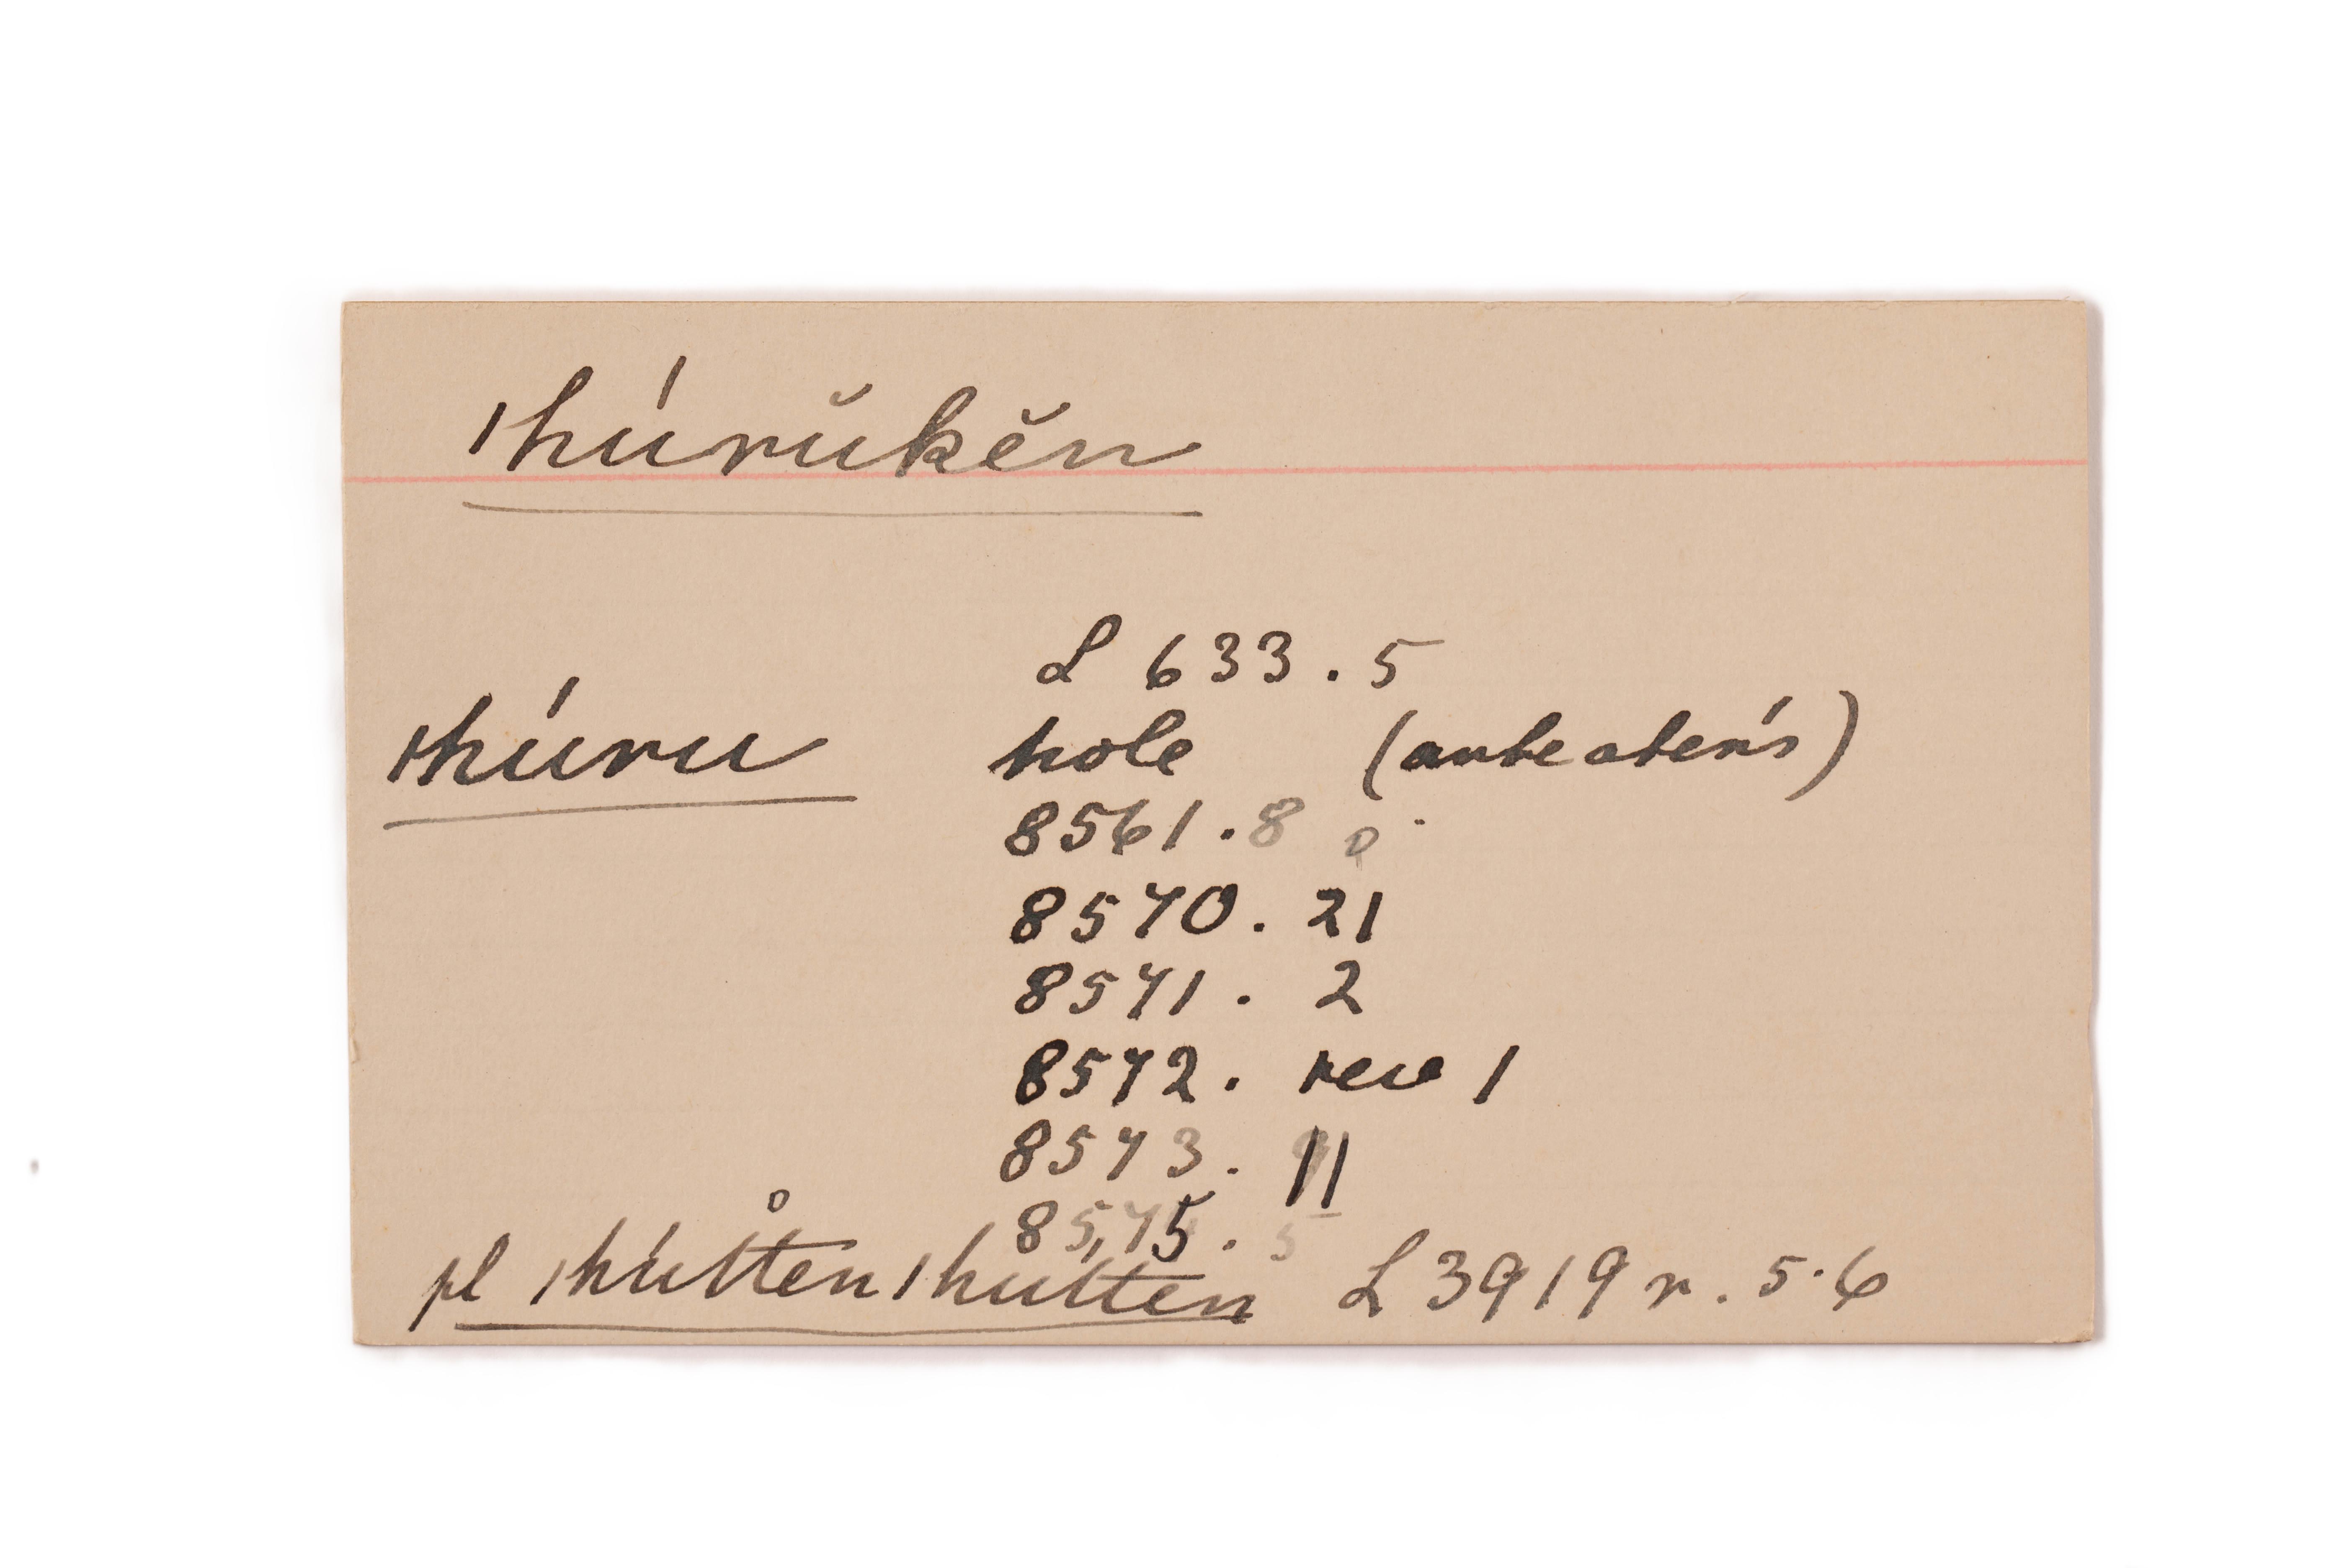 ǀhúrŭkĕn
L 633 . 5
ǀhúru hole (anteater's)
8561 . 8
8570 . 21
8571 . 2
8572 . rev 1
8573 . 11
8575 . 5
pl ǀhútten ǀhutten L 3919 r . 5.6